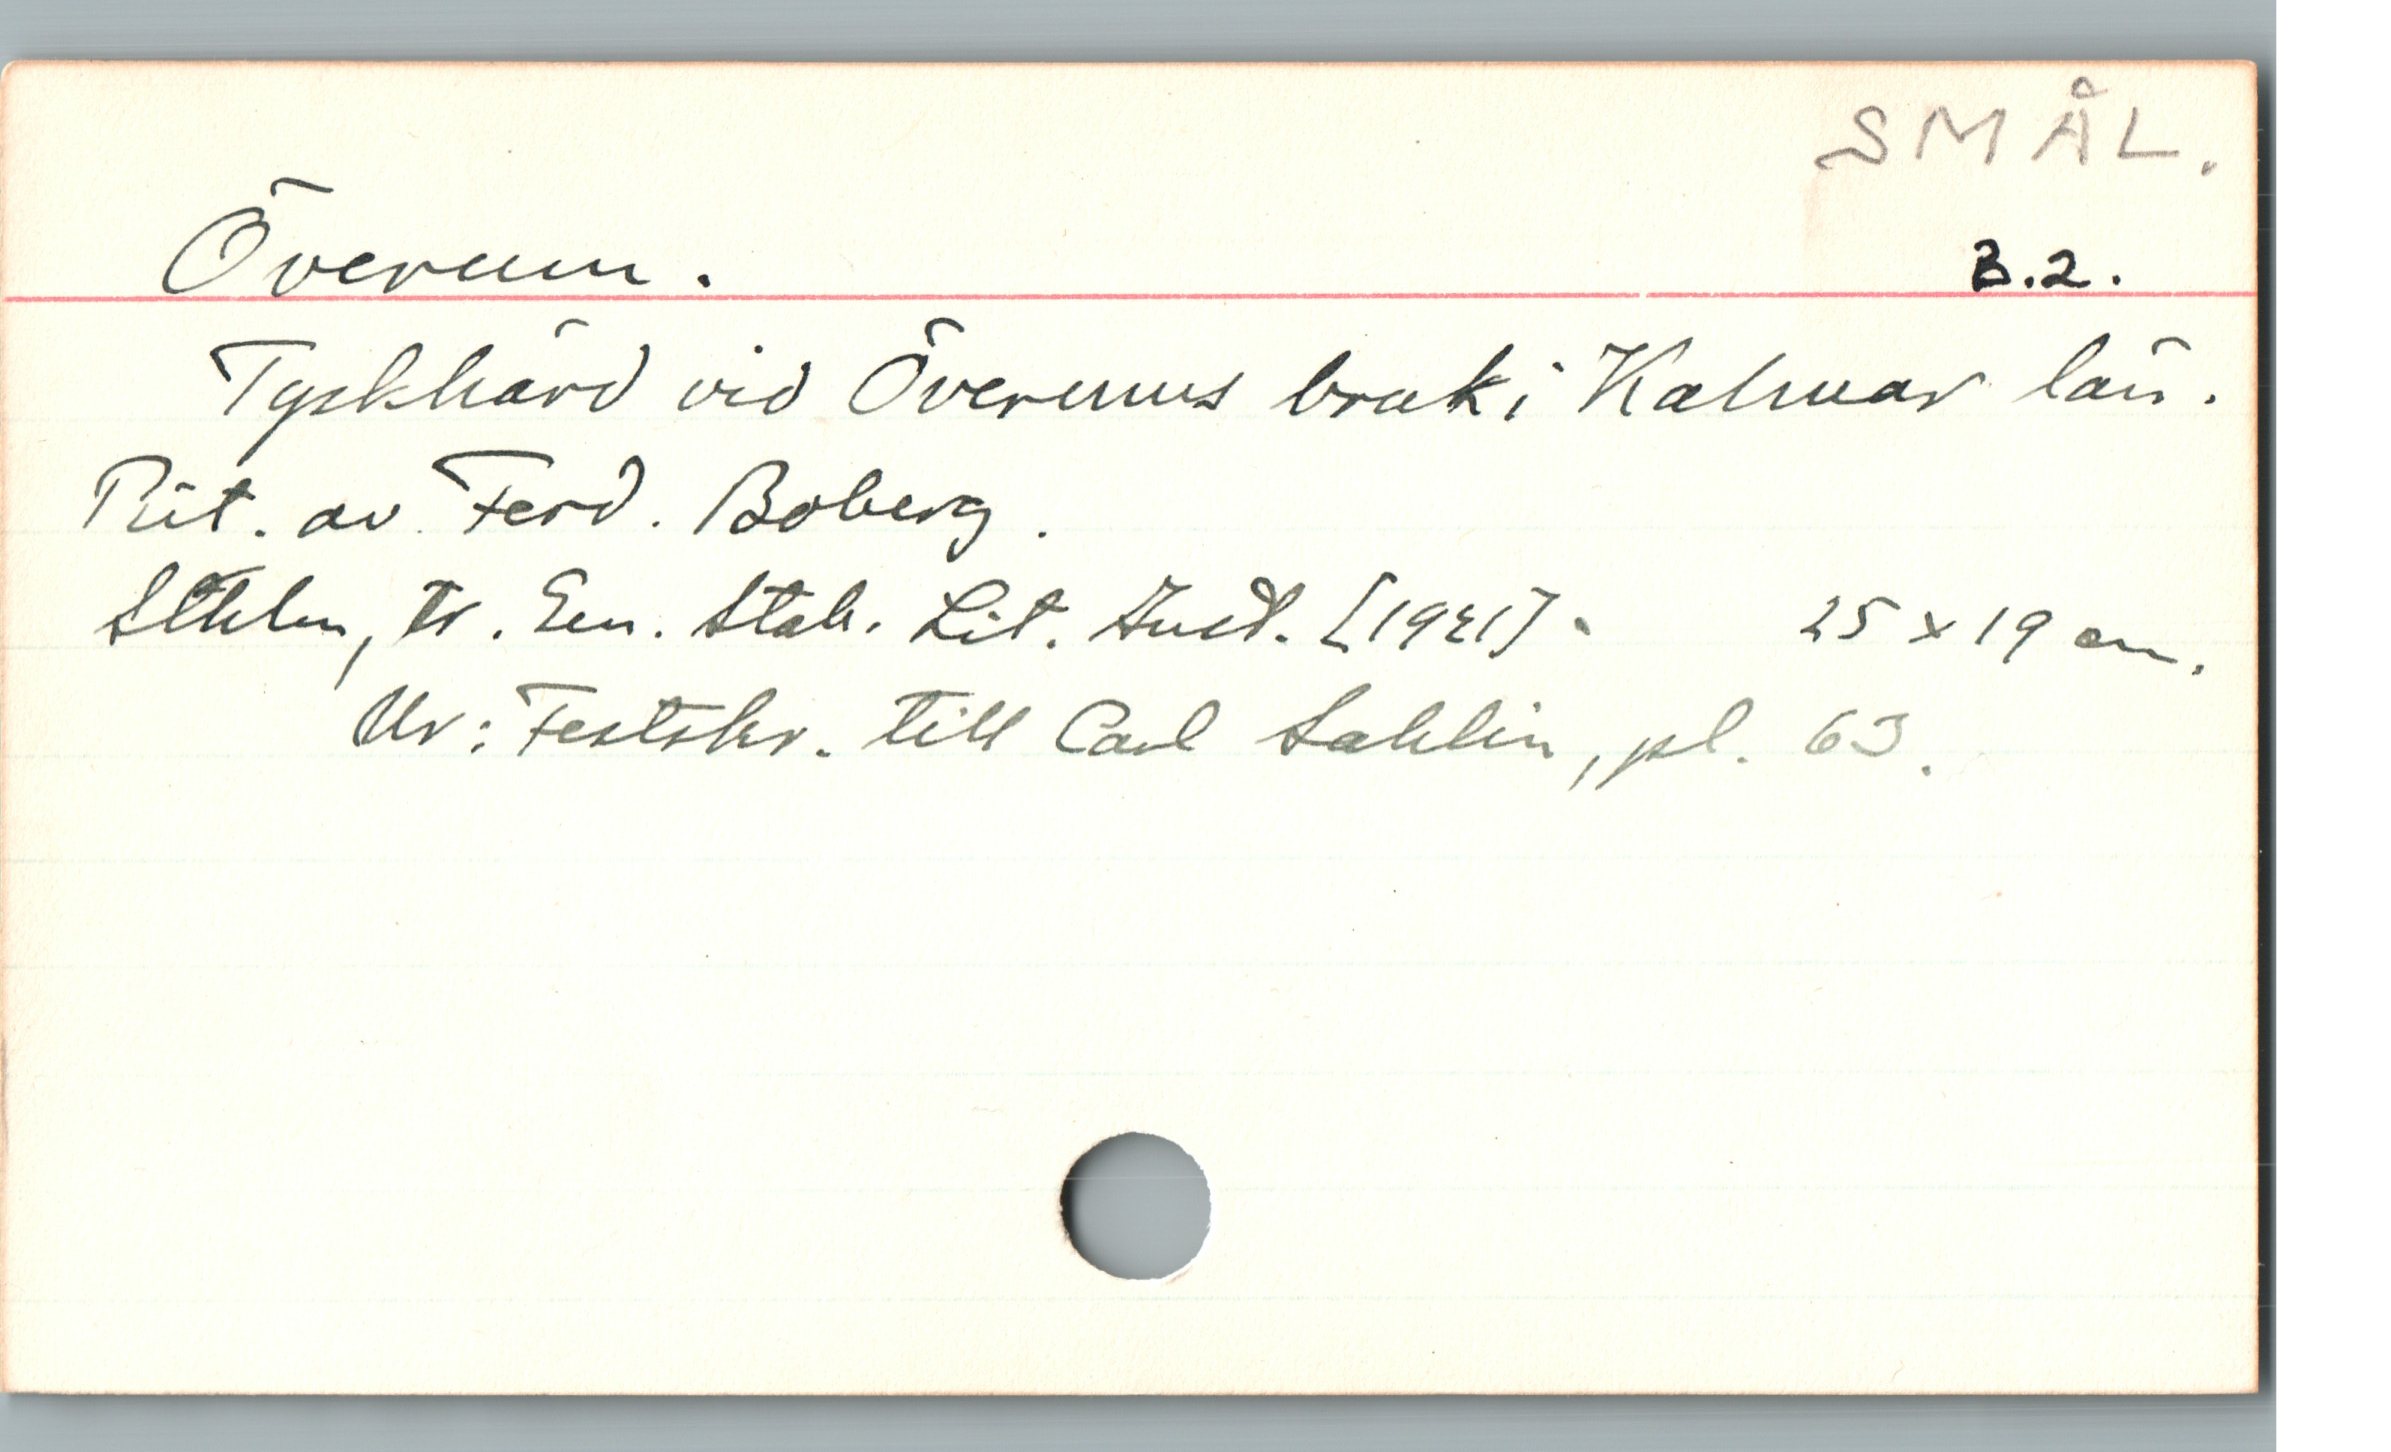 SMÅL.
Överum. B.2.
Tyskhärd vid Överums bruk i Kalmar län.
Rit. av Ferd. Boberg.
Sthlm, tr. Gen. Stab. Lit. Anst. [1921]. 25 x 19 cm.
Ur: Festskr. till Carl Sahlin, pl. 63.